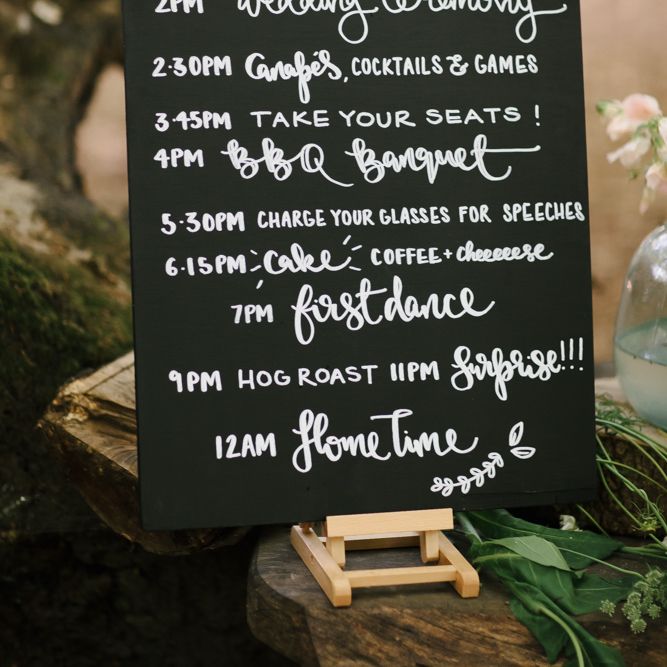 2PM Wedding Ceremony
2·30PM Canapés, COCKTAILS & GAMES
3·45PM TAKE YOUR SEATS !
4PM BBQ Banquet
5·30PM CHARGE YOUR GLASSES FOR SPEECHES
6·15PM Cake COFFEE + cheeeeese
7PM first dance
9PM HOG ROAST 11PM Surprise!!!
12AM Home Time